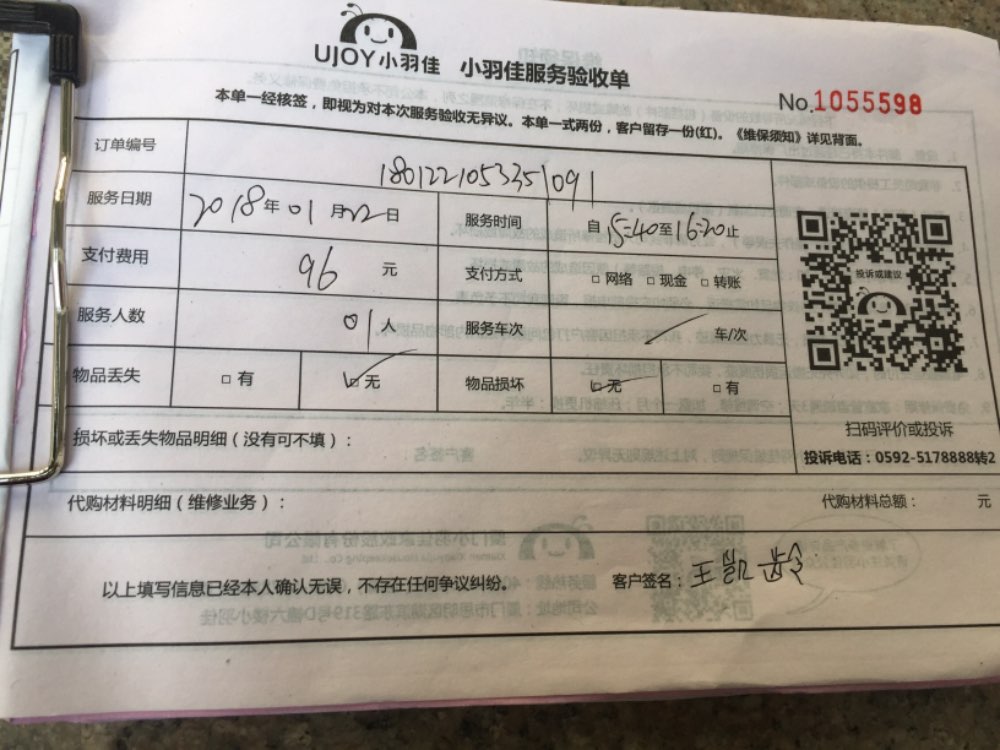 UJOY小羽佳 小羽佳服务验收单
No.1055598
本单一经核签，即视为对本次服务验收无异议。本单一式两份，客户留存一份(红)。《维保须知》详见背面。
订单编号 1801221053351091
服务日期 2018年01月22日 服务时间 自15:40至16:20止
支付费用 96元 支付方式 □网络 □现金 □转账
投诉或建议
服务人数 01人 服务车次 车/次
物品丢失 □有 □无 物品损坏 □无 □有
损坏或丢失物品明细（没有可不填）：
扫码评价或投诉
投诉电话：0592-5178888转2
代购材料明细（维修业务）： 代购材料总额： 元
以上填写信息已经本人确认无误，不存在任何争议纠纷。 客户签名：王凯龄